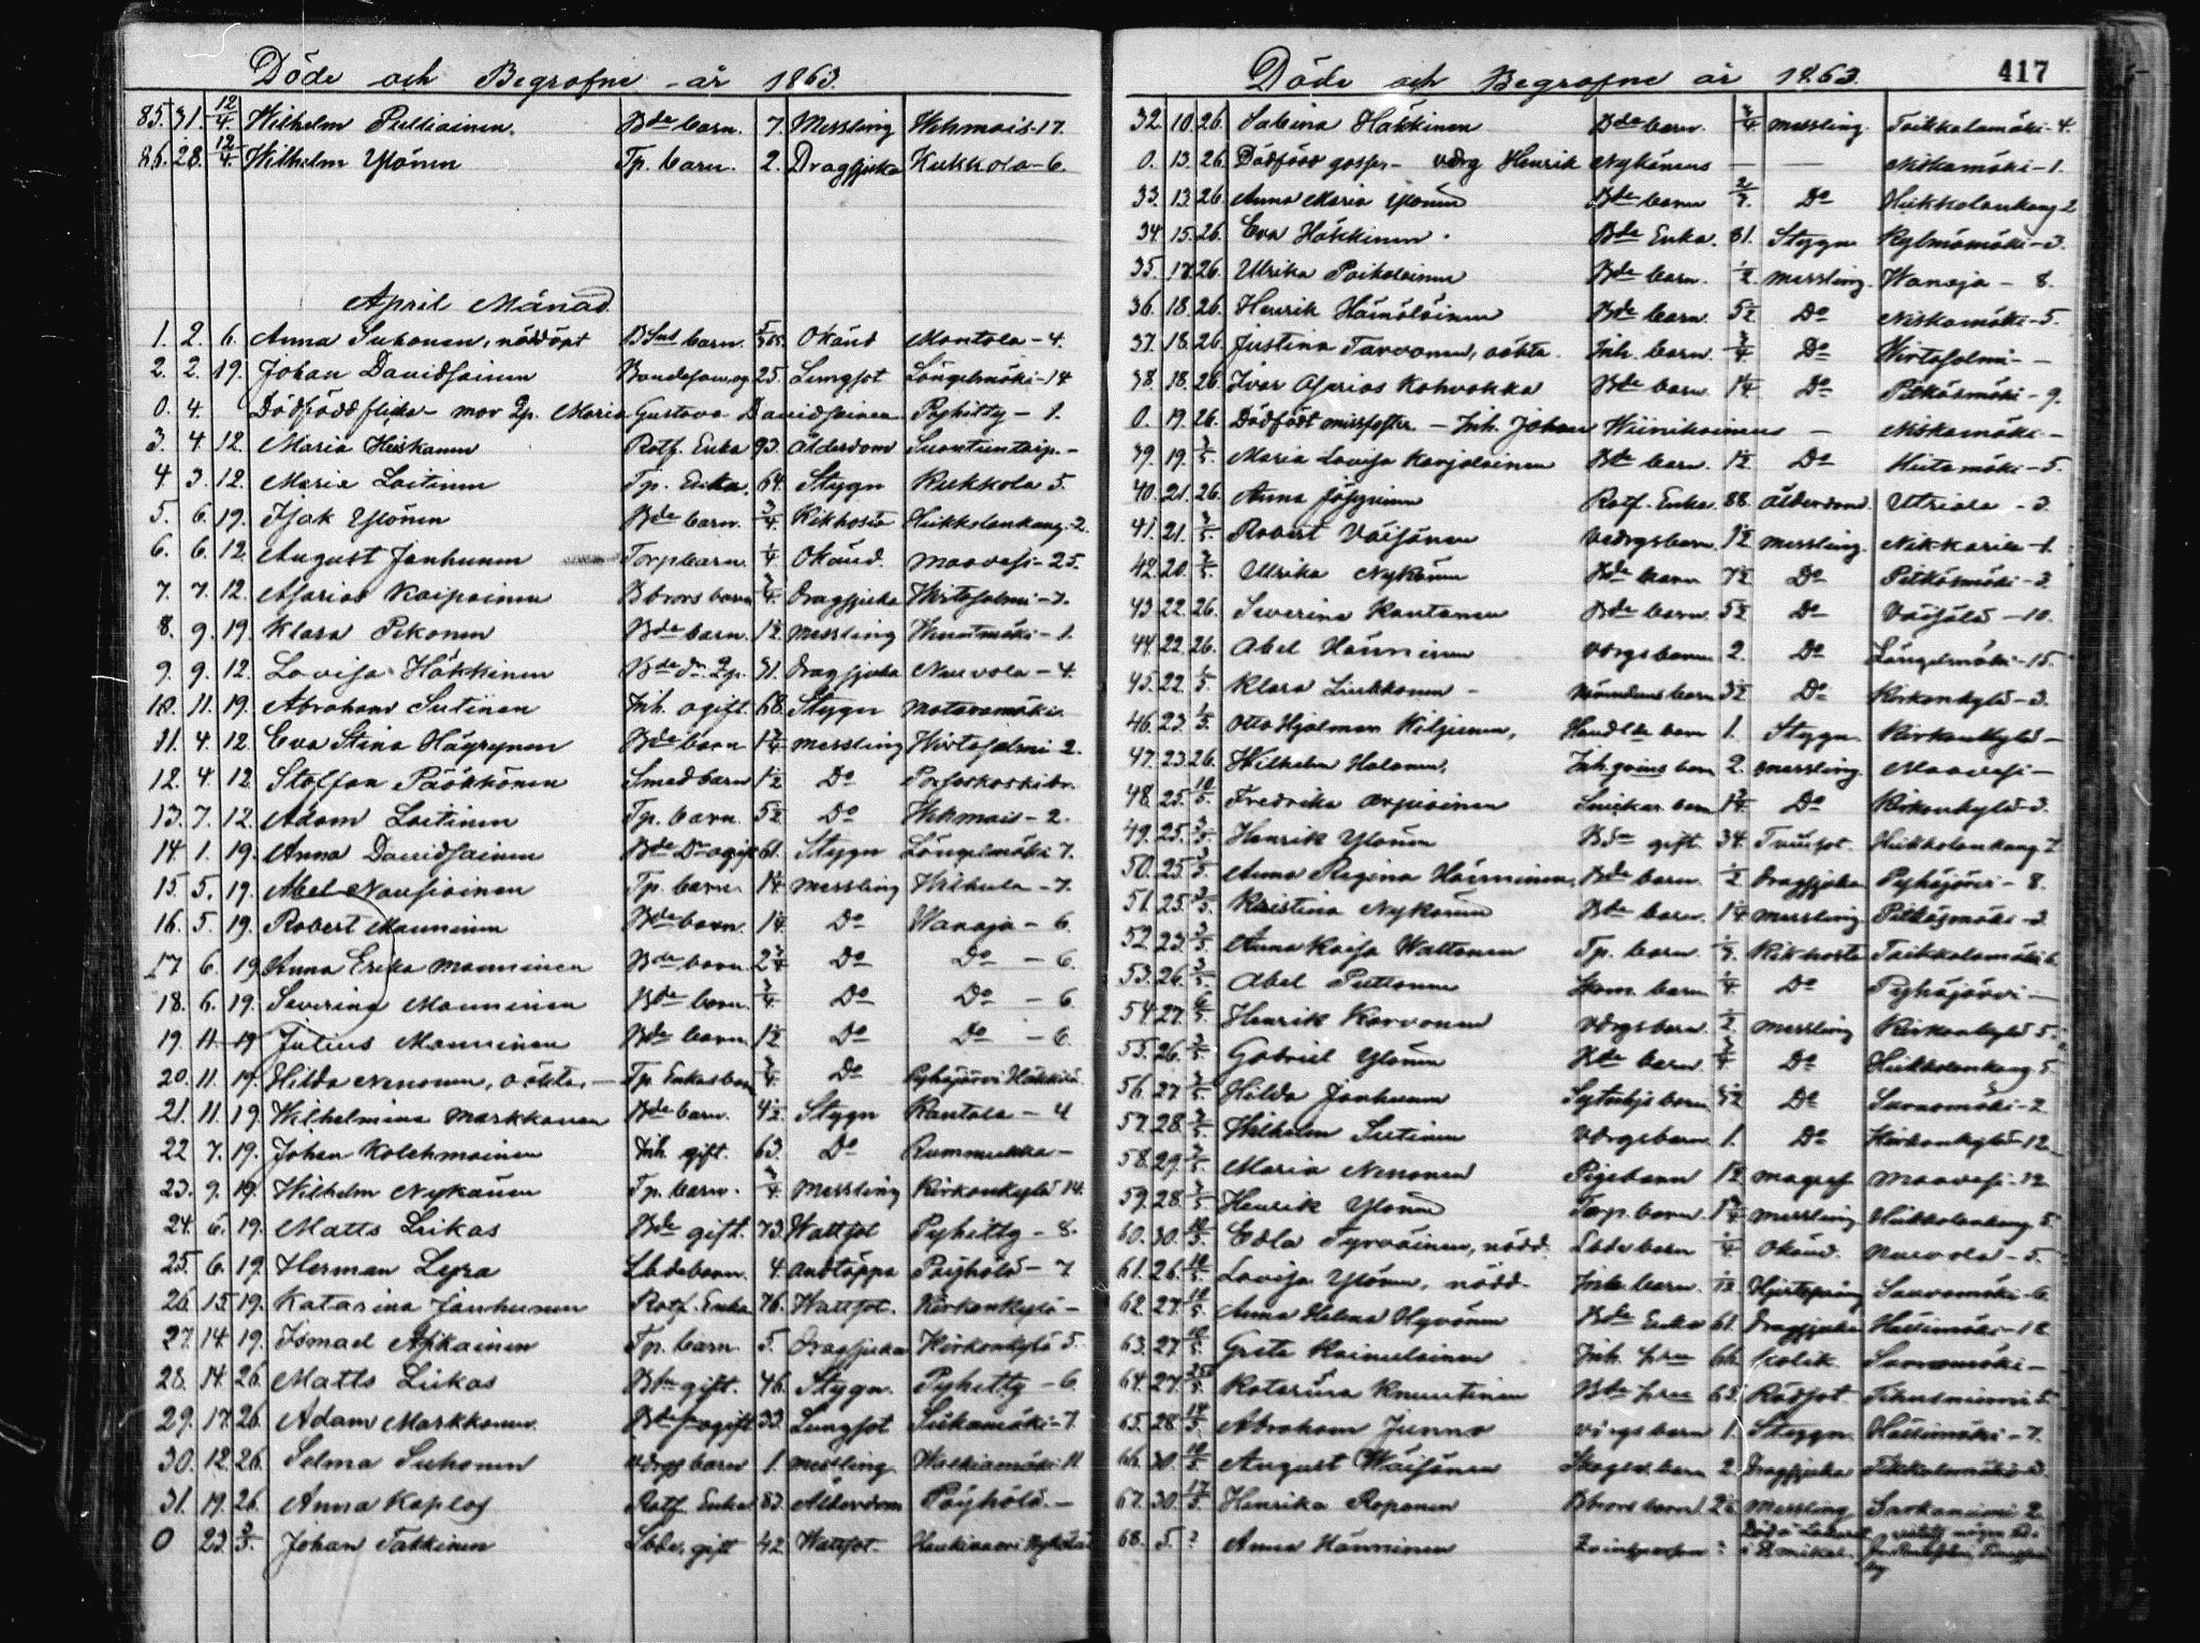 Döde och Begrafne år 1863.
85. 31. 12/4 Wilhelm Pulliainen. Bde barn. 7. Messling Wehmais-17.
86. 28. 12/4 Wilhelm Ylönen Tp. barn. 2. Dragsjuka Kukkola-6.
April Månad
1. 2. 6. Anna Suhonen, nöddöpt barn. Okänd Montola-4.
2. 2. 19. Johan Davidsainen 25. Lungsot Längelmäki-14
0. 4. Dödfödd flicka - mor Maria Gustava Davidsainen Pyhitty-1.
3. 4. 12. Maria Heiskanen Rotf. Enka 93. Ålderdom
4. 3. 12. Maria Laitinen Tp. Enka. 64. Stygn Kukkola 5.
5. 6. 19. Isak Ylönen Bde barn. 3/4. Kikhosta Hukkolankang. 2.
6. 6. 12. August Janhunen Torp barn. 1/4 Okänd. Maavesi-25.
7. 7. 12. Asarias Kaipainen barn 3/4. Dragsjuka Hirtosalmi-3.
8. 9. 19. Klara Pekonen Bde barn. 1 1/2 Messling -1.
9. 9. 12. Lovisa Häkkinen 31. Dragsjuka Neuvola-4.
10. 11. 19. Abraham Sutinen Inh. ogift. 68. Stygn
11. 4. 12. Eva Stina Häyrynen Bde barn Messling Hirtosalmi 2.
12. 4. 12. Staffan Pöökkönen Smed barn 1 1/2 Do
13. 7. 12. Adam Laitinen Tp. barn. 5 1/2 Do Wehmais-2.
14. 1. 19. Anna Davidsainen ogift 61. Stygn Längelmäki 7.
15. 5. 19. Abel Nousiainen Tp. barn. 1 1/4 Messling Wilhula-7.
16. 5. 19. Robert Manninen Bde barn. 1 1/4. Do Wanaja-6.
17 6. 19. Anna Erika Manninen Bde barn. 2 3/4 Do Do-6.
18. 6. 19. Severina Manninen Bde barn. 3/4 Do Do-6.
19. 11. 19 Julius Manninen Bde barn. 1 1/2 Do Do-6.
20. 11. 19. Hilda Nenonen, oäkta. Tp. Enkas barn 3/4 Do Pyhäjärvi
21. 11. 19. Wilhelmina Markkanen Bde barn. 4 1/2 Stygn Rantala-4
22 7. 19. Johan Kolehmainen Inh. gift. 63. Do Rummukka-
23. 9. 19. Wilhelm Nykänen Tp. barn. 3/4. Messling Kirkonkylä 14.
24. 6. 19. Matts Liikas Bde gift. 73. Wattsot Pyhitty-8.
25. 6. 19. Herman Lyra barn. 4. Andtäppa Päyhölä-7
26. 15. 19. Katarina Janhunen Rotf. Enka 76. Wattsot. Kirkonkylä-
27. 14. 19. Ismael Tp. barn. 5. Dragsjuka Kirkonkylä 5.
28. 14. 26. Matts Liikas Bde gift. 46. Stygn. Pyhitty-6.
29. 17. 26. Adam Markkanen ogift 33. Lungsot Siikamäki-7.
30. 12. 26. Selma Suhonen Värgs barn 1. Messling 11
31. 19. 26. Anna Kaplas Rotf. Enka 83. Ålderdom Päyhölä.-
0 23. 3/5. Johan Takkinen gift 42. Wattsot.
Döde och Begrafne år 1863. 417
32. 10. 26. Sabina Häkkinen Bde barn. 3/4 Messling. Toikkalamäki-4.
0. 13. 26. Dödfödd gosse- värg Henrik Nykänens Niskamäki-1.
33. 13. 26. Anna Maria Ylönen Bde barn Do Hukkolankang 2
34. 15. 26. Eva Häkkinen. Bde Enka. 81. Stygn Kylmämäki-3.
35. 17. 26. Ulrika Paikolainen Bde barn. 1/2. Messling. Wanaja-8.
36. 18. 26. Henrik Hämäläinen Bde barn. 5 1/2 Do Niskamäki-5.
37. 18. 26. Justina Tarvonen, oäkta. Inh. barn. 3/4 Do Hirtosalmi-
38. 18. 26. Ivar Asarias Kohvakka Bde barn. 1 1/4 Do Pitkäsmäki-9.
0. 19. 26. Dödfödt missfoster - Inh. Johan Wiinikainens - Niskamäki-
39. 19. Maria Lovisa Karjalainen Bde barn. 1 1/2 Do -5.
40. 21. 26. Anna Rotf. Enka. 88. Ålderdom Utriala-3.
41. 21. Robert Väisänen Värgsbarn. 1 1/2 Messling. Nikkarila-1.
42. 20. Ulrika Nykänen Bde barn 7 1/2 Do Pitkäsmäki-3.
43. 22. 26. Severina Rantanen Bde barn. 5 1/2 Do Väisälä-10.
44. 22. 26. Abel Hänninen Värgsbarn 2. Do Längelmäki-15.
45. 22. Klara Liukkonen - barn 3 1/2 Do Kirkonkylä-3.
46. 23. Otto Hjalmar Kiljunen, barn 1. Stygn Kirkonkylä-
47. 23. 26. Wilhelm Halonen, barn 2. Messling. Maavesi-
48. 25. Fredrika Arpiainen Snickar barn Do Kirkonkylä-3.
49. 25. Henrik Ylönen gift 34. Tvinsot. Hukkolankang 7.
50. 25. Anna Regina Hänninen, Bde barn. 1/2 Dragsjuka Pyhäjärvi-8.
51. 25. Kristina Nykänen Bde barn. 1 1/4 Messling Pitkäsmäki-3.
52. 23. Anna Kaisa Wattonen Tp. barn. Kikhosta Toikkalamäki 6.
53. 26. Abel Puttonen barn 1/4 Do Pyhäjärvi-
54. 27. Henrik Karvonen Värgsbarn. 1/2 Messling Kirkonkylä 5.
55. 26. Gabriel Ylönen Bde barn 3/4 Do Hukkolankang 5.
56. 27 Hilda Janhunen Sytnings barn Do Savomäki-2
57. 28. Wilhelm Sutinen Värgsbarn. 1. Do Kirkonkylä-12.
58. 29. Maria Nenonen Pigebarn Maavesi-12
59. 28. Henrik Ylönen Torp. barn. Messling Hukkolankang 5.
60. 30. Edla Tyrväinen, nödd. barn 1/4 Okänd. Neuvola-5.
61. 26. Lovisa Ylönen, nödd. Inh. barn. 1/12 Savomäki-6
62. 27. Anna Helena Hyvönen Bde Enka 61. Dragsjuka Hällinmäki-18
63. 27. Greta Kainulainen Inh. 66. Kolik. Savomäki-
64. 27. Katarina Knuutinen Bde 65. Rödsot 5.
65. 28. Abraham Junno Värgs barn 1. Stygn. Hällinmäki-7.
66. 30. August Väisänen barn 2. Dragsjuka
67. 30. Henrika Roponen barn Messling Sarkaniemi 2.
68. 5. ? Anna Hänninen ? Död å Lazarett